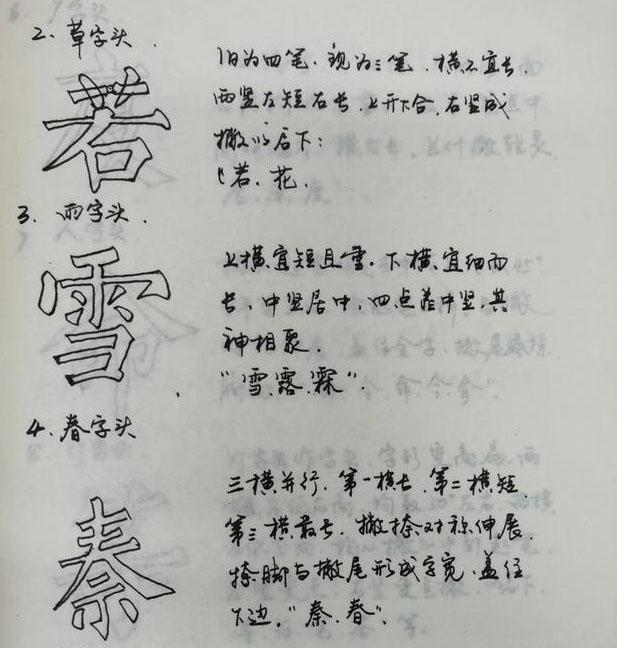 2、草字头.
若
旧为四笔、现为三笔、横不宜长、
两竖左短右长、上开下合、右竖成
撇以后下:
"若、花、
3、雨字头.
雪
上横宜短且重、下横宜细而
长、中竖居中、四点靠中竖、其
神相聚.
"雪、露、霖".
4、春字头
秦
三横并行、第一横长、第二横短、
第三横最长、撇捺对称伸展、
捺脚与撇尾形成字宽、盖住
下边、"秦、春".